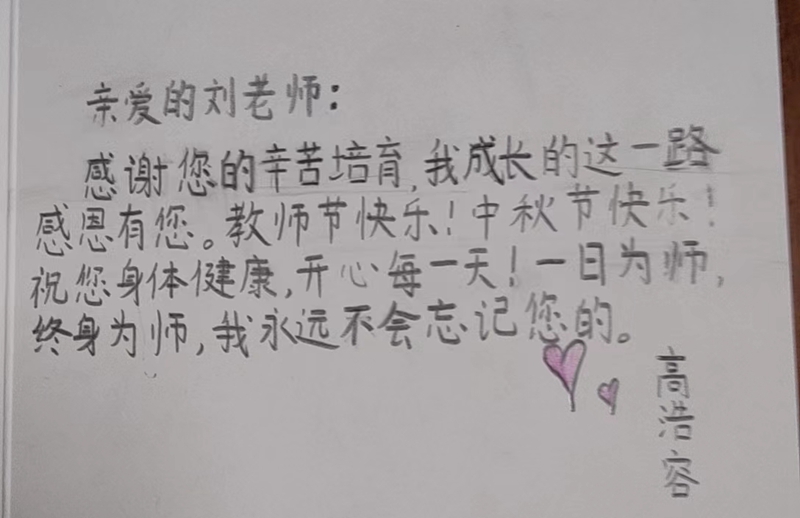 亲爱的刘老师:
感谢您的辛苦培育,我成长的这一路
感恩有您。教师节快乐!中秋节快乐!
祝您身体健康,开心每一天!一日为师,
终身为师,我永远不会忘记您的。
高浩容